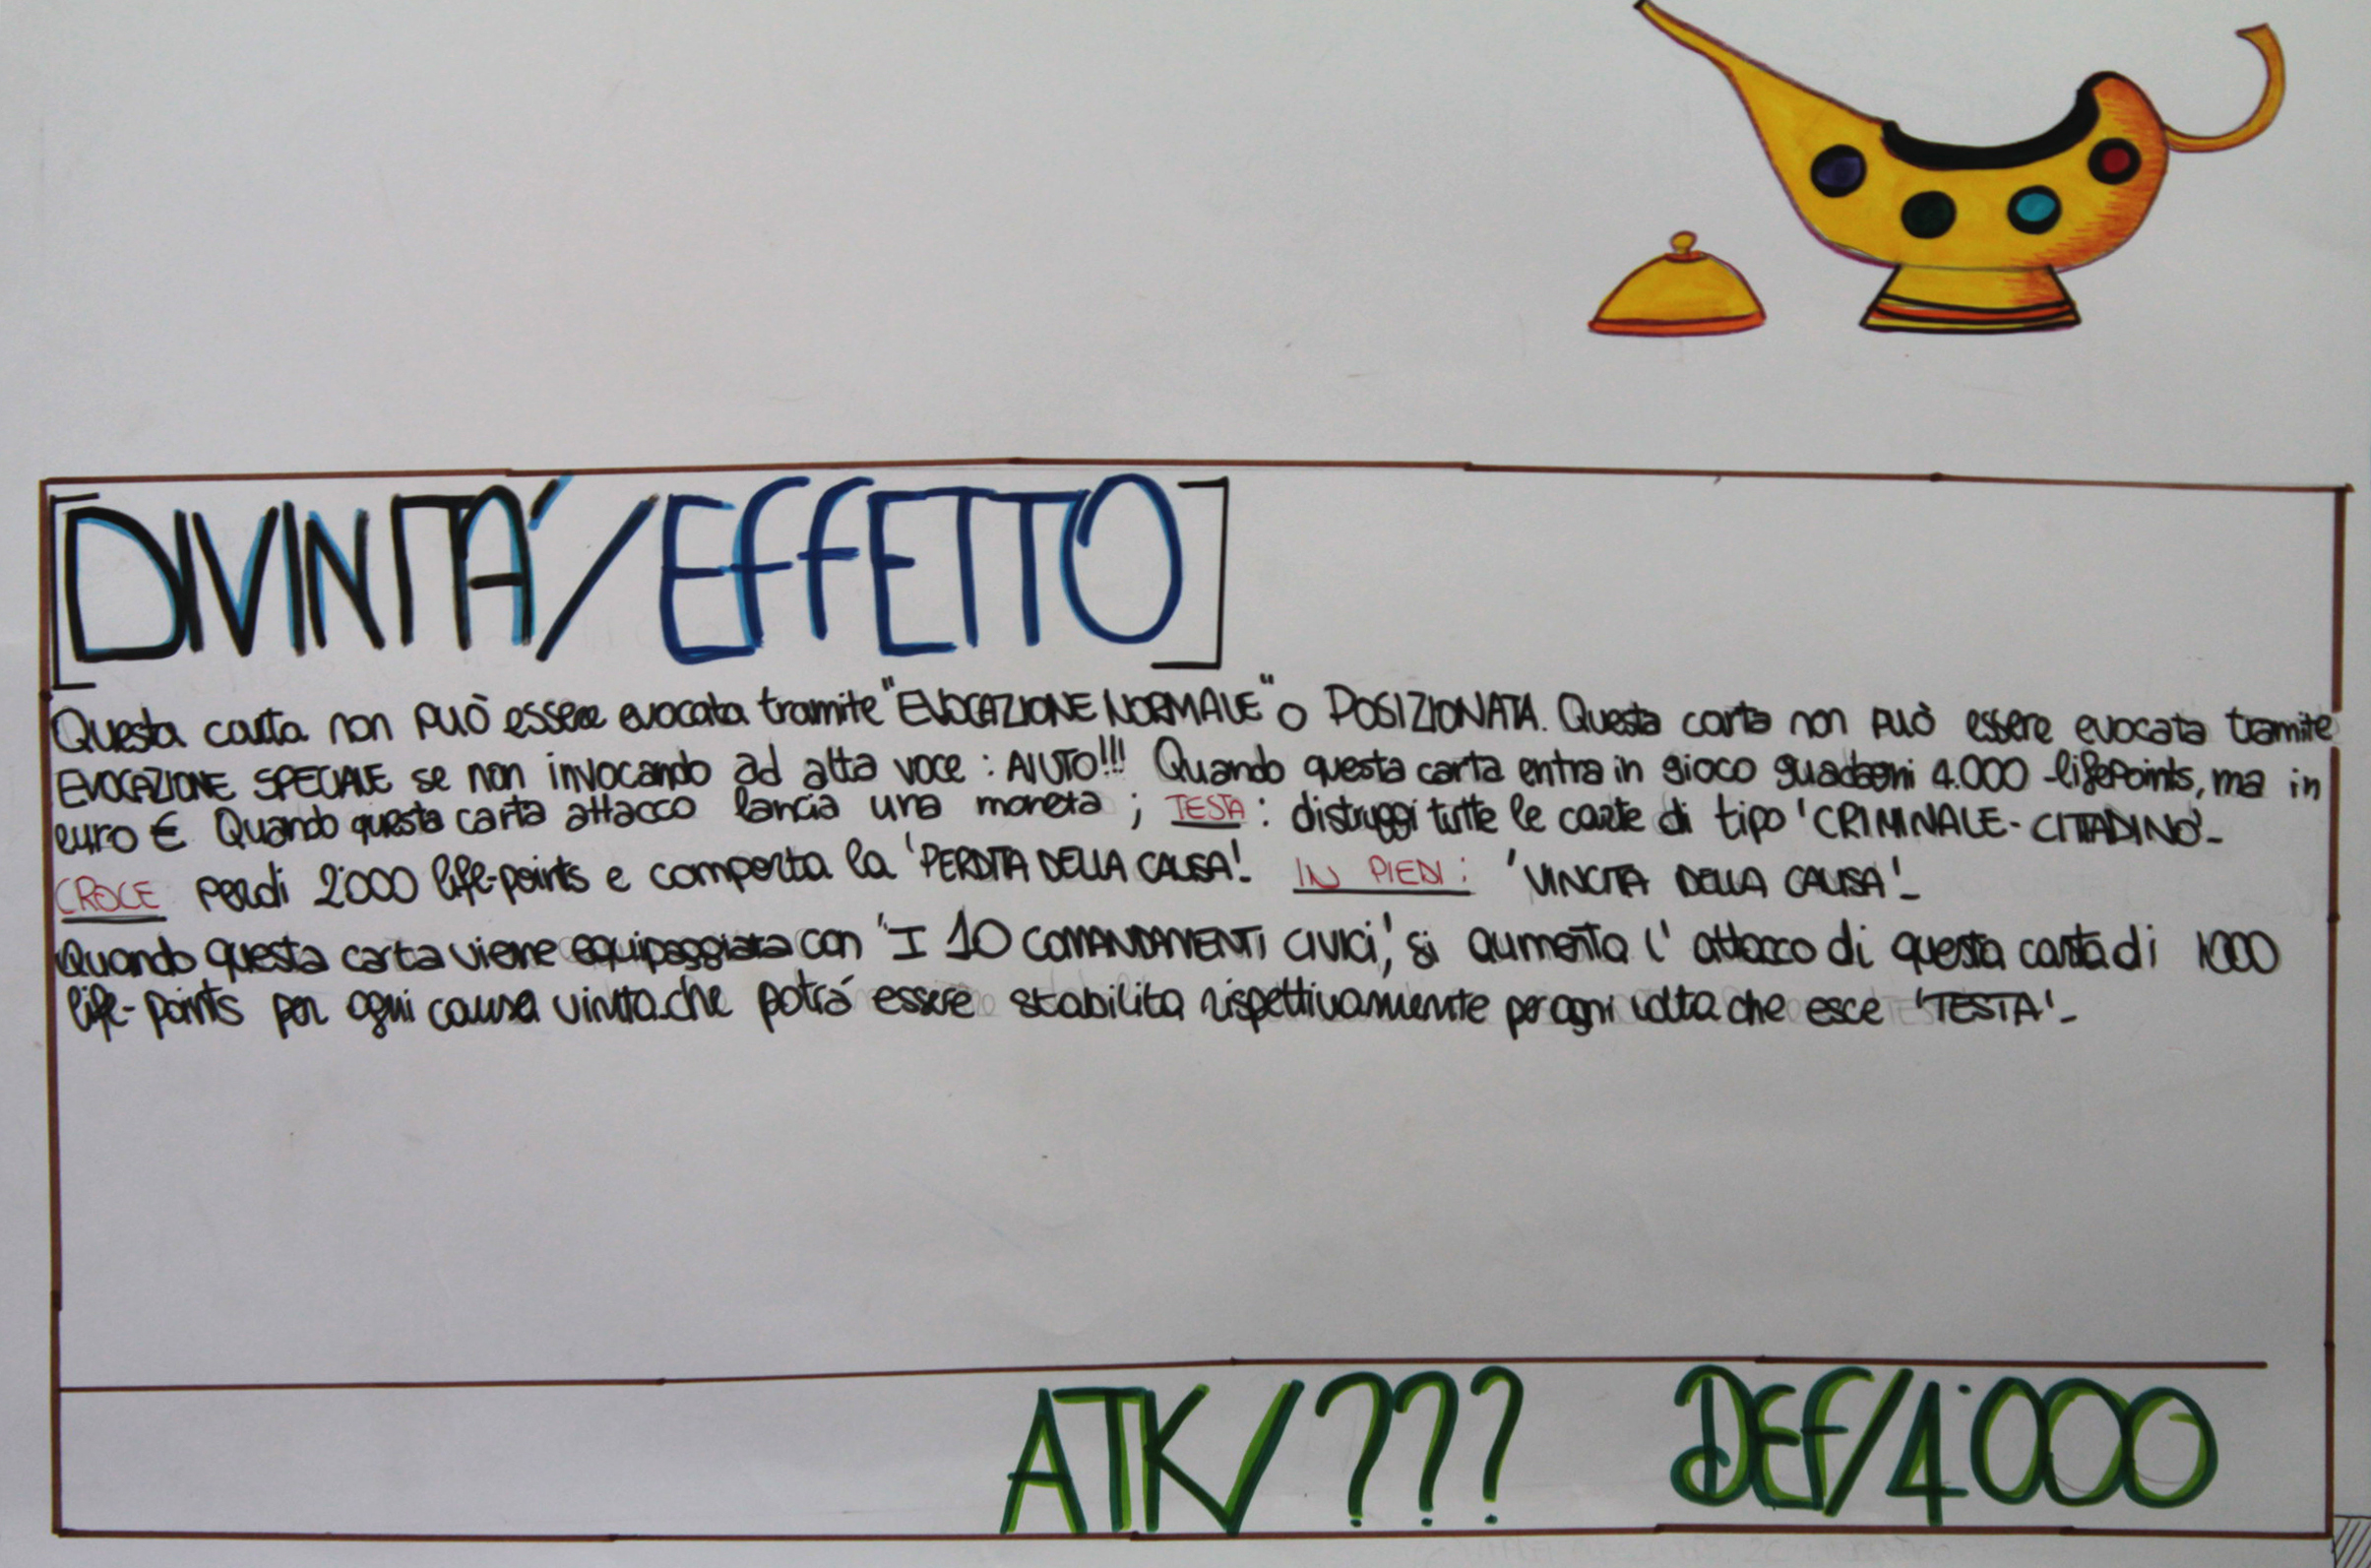 [DIVINITA'/EFFETTO]
Questa carta non può essere evocata tramite "EVOCAZIONE NORMALE" o POSIZIONATA. Questa carta non può essere evocata tramite
EVOCAZIONE SPECIALE se non invocando ad alta voce : AIUTO!!! Quando questa carta entra in gioco guadagni 4.000 -lifepoints, ma in
euro €. Quando questa carta attacco lancia una moneta ; TESTA : distruggi tutte le carte di tipo 'CRIMINALE - CITTADINO'-
CROCE perdi 2'000 life-points e comporta la 'PERDITA DELLA CAUSA'. IN PIEDI : 'VINCITA DELLA CAUSA'-
Quando questa carta viene equipaggiata con "I 10 COMANDAMENTI CIVICI', si aumenta l' attacco di questa carta di 1000
life-points per ogni causa vinta che potrá essere stabilita rispettivamente per ogni volta che esce 'TESTA'-
ATK/??? DEF/4'000